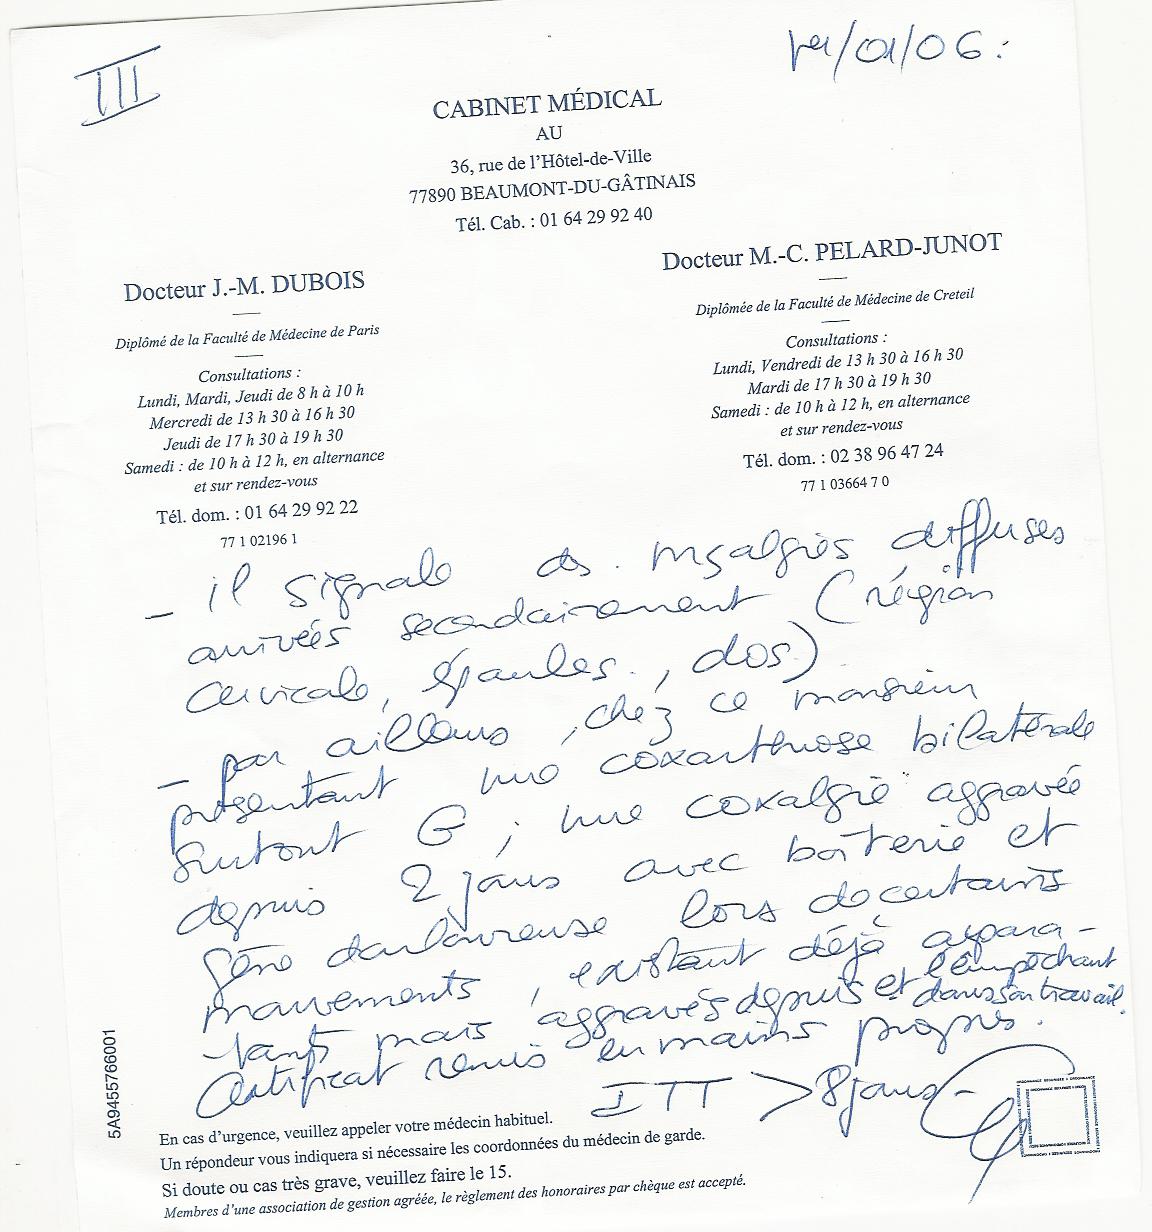 III
/01/06 :
CABINET MÉDICAL
AU
36, rue de l'Hôtel-de-Ville
77890 BEAUMONT-DU-GÂTINAIS
Tél. Cab. : 01 64 29 92 40
Docteur J.-M. DUBOIS
Diplômé de la Faculté de Médecine de Paris
Consultations :
Lundi, Mardi, Jeudi de 8 h à 10 h
Mercredi de 13 h 30 à 16 h 30
Jeudi de 17 h 30 à 19 h 30
Samedi : de 10 h à 12 h, en alternance
et sur rendez-vous
Tél. dom. : 01 64 29 92 22
77 1 02196 1
Docteur M.-C. PELARD-JUNOT
Diplômée de la Faculté de Médecine de Creteil
Consultations :
Lundi, Vendredi de 13 h 30 à 16 h 30
Mardi de 17 h 30 à 19 h 30
Samedi : de 10 h à 12 h, en alternance
et sur rendez-vous
Tél. dom. : 02 38 96 47 24
77 1 03664 7 0
- il signale ds. myalgies diffuses
arrivées secondairement (région
cervicale, épaules., dos)
- par ailleurs, chez ce monsieur
présentant une coxarthrose bilatérale
surtout G, une coxalgie aggravée
depuis 2 jours avec boiterie et
gêne douloureuse lors de certains
mouvements, existant déjà aupara-
vant mais aggravés depuis et l'empêchant
dans son travail.
Certificat remis en mains propres.
ITT > 8 jours
5A9455766001
En cas d'urgence, veuillez appeler votre médecin habituel.
Un répondeur vous indiquera si nécessaire les coordonnées du médecin de garde.
Si doute ou cas très grave, veuillez faire le 15.
Membres d'une association de gestion agréée, le règlement des honoraires par chèque est accepté.